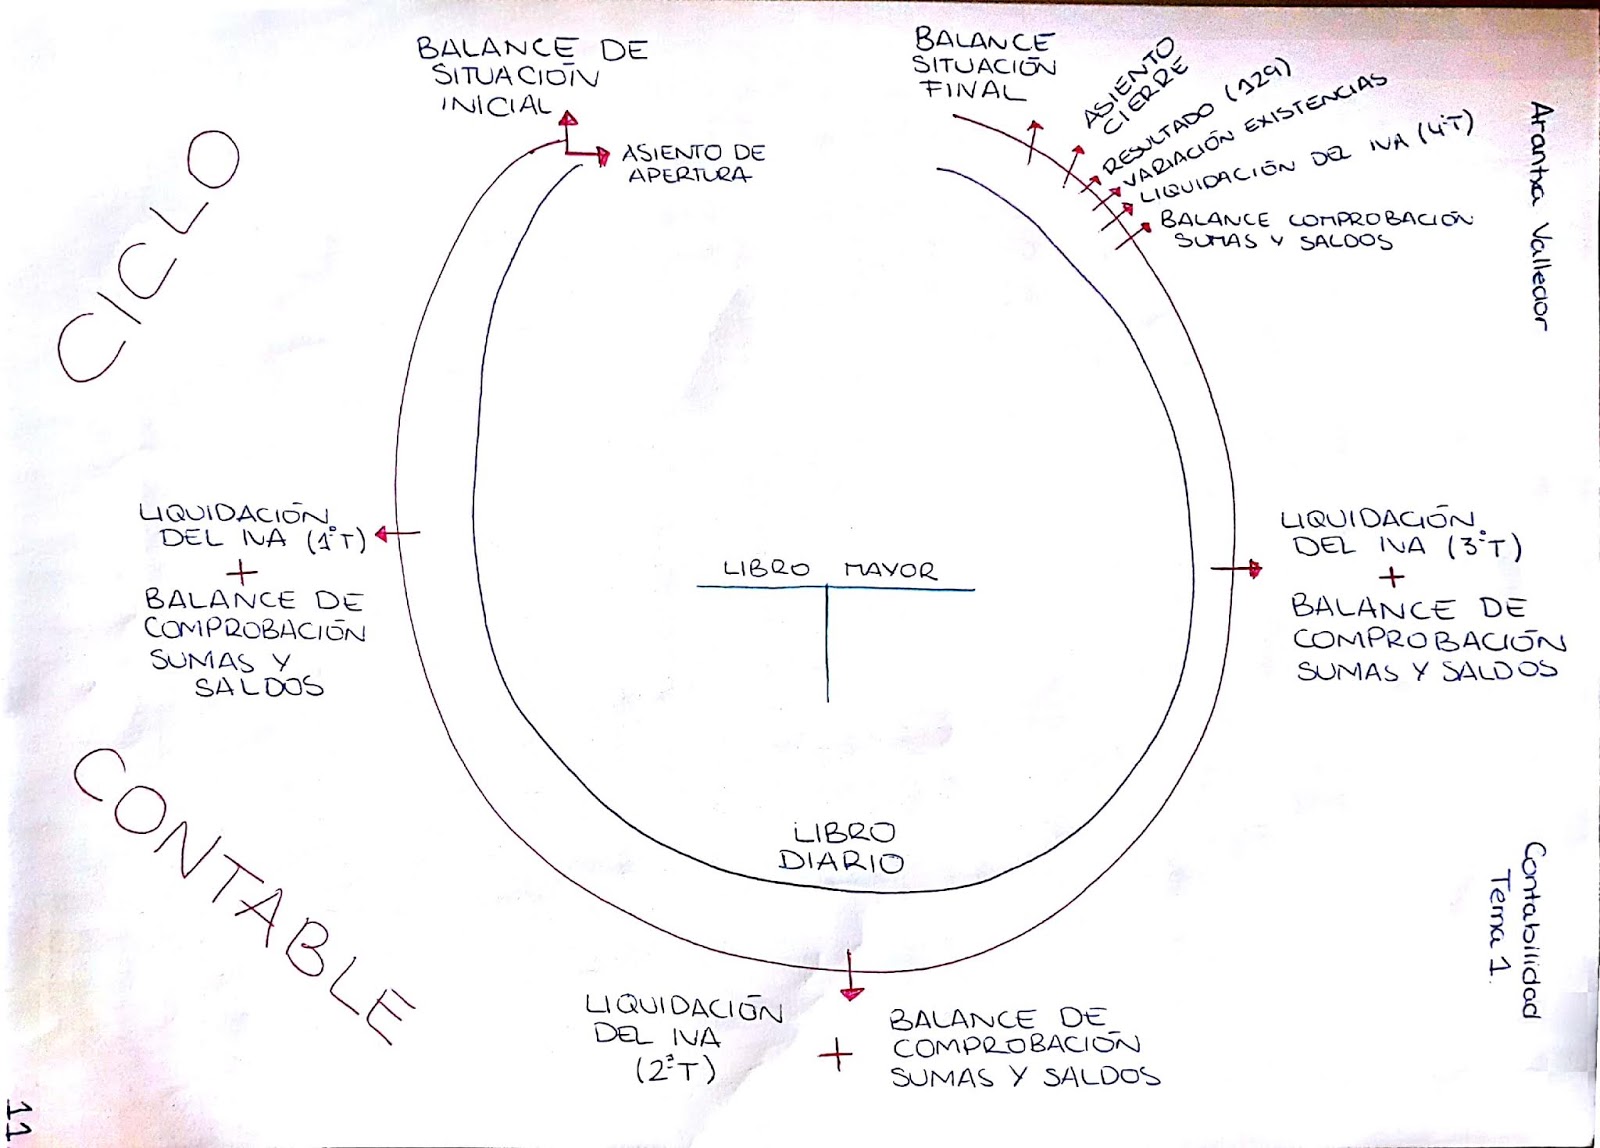 CICLO
CONTABLE
BALANCE DE
SITUACIÓN
INICIAL
ASIENTO DE
APERTURA
LIQUIDACIÓN
DEL IVA (1ºT)
+
BALANCE DE
COMPROBACIÓN
SUMAS Y
SALDOS
LIQUIDACIÓN
DEL IVA
(2ºT)
+
BALANCE DE
COMPROBACIÓN
SUMAS Y SALDOS
LIQUIDACIÓN
DEL IVA (3ºT)
+
BALANCE DE
COMPROBACIÓN
SUMAS Y SALDOS
BALANCE COMPROBACIÓN
SUMAS Y SALDOS
LIQUIDACIÓN DEL IVA (4ºT)
VARIACIÓN EXISTENCIAS
RESULTADO (129)
ASIENTO
CIERRE
BALANCE
SITUACIÓN
FINAL
LIBRO MAYOR
LIBRO
DIARIO
Arantxa Valledor
Contabilidad
Tema 1
11